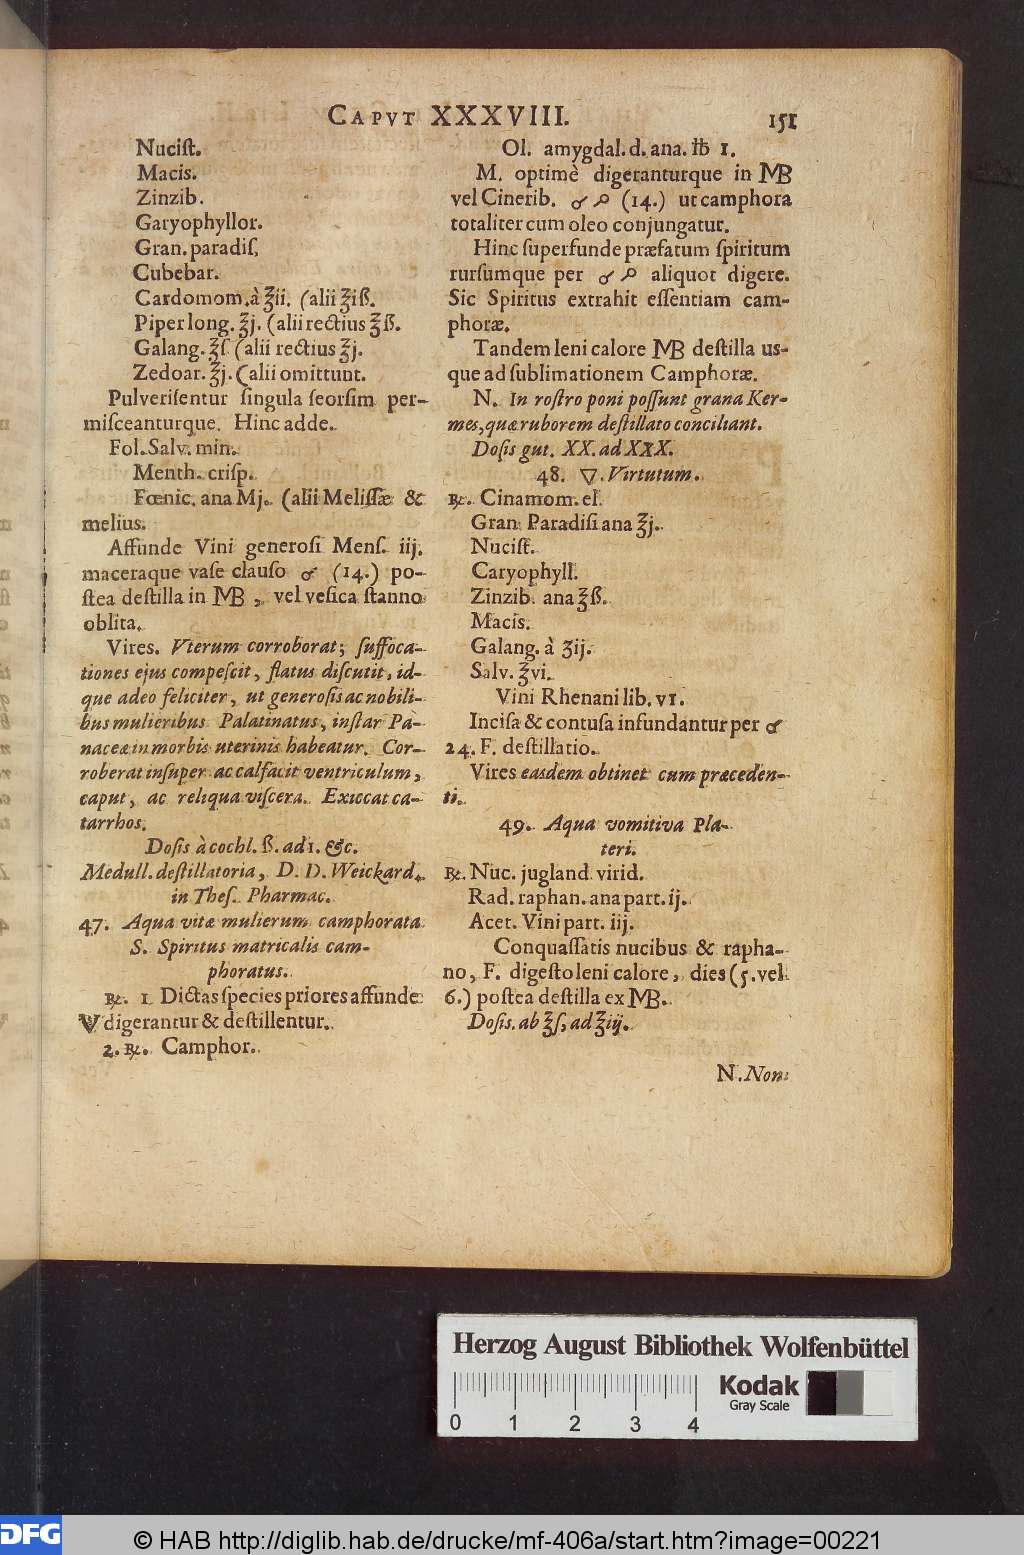 CAPVT XXXVIII. 151
Nuciſt.
Macis.
Zinzib.
Garyophyllor.
Gran. paradiſ.
Cubebar.
Cardomom. à ℥ii. (alii ℥iß.
Piper long. ℥j. (alii rectius ℥ß.
Galang. ℥ſ (alii rectius ℥j.
Zedoar. ℥j. (alii omittunt.
Pulveriſentur ſingula ſeorſim per-
miſceanturque. Hinc adde.
Fol. Salv. min.
Menth. criſp.
Fœnic. ana Mj. (alii Meliſſæ &
melius.
Affunde Vini generoſi Menſ. iij.
maceraque vaſe clauſo ♂ (14.) po-
ſtea deſtilla in MB, vel veſica ſtanno
oblita.
Vires. Vterum corroborat; ſuffoca-
tiones ejus compeſcit, flatus diſcutit, id-
que adeo feliciter, ut generoſis ac nobili-
bus mulieribus Palatinatus, inſtar Pa-
naceæ in morbis uterinis habeatur. Cor-
roberat inſuper ac calfacit ventriculum,
caput, ac reliqua viſcera. Exiccat ca-
tarrhos.
Doſis à cochl. ß. ad 1. &c.
Medull. deſtillatoria, D. D. Weickard.
in Theſ. Pharmac.
47. Aqua vitæ mulierum camphorata
S. Spiritus matricalis cam-
phoratus.
℞. 1 Dictas ſpecies priores affunde
V digerantur & deſtillentur.
2. ℞. Camphor.
Ol. amygdal. d. ana. ℔ 1.
M. optimè digeranturque in MB
vel Cinerib. ♂ (14.) ut camphora
totaliter cum oleo conjungatur.
Hinc ſuperfunde præfatum ſpiritum
rurſumque per ♂ aliquot digere.
Sic Spiritus extrahit eſſentiam cam-
phoræ.
Tandem leni calore MB deſtilla us-
que ad ſublimationem Camphoræ.
N. In roſtro poni poſſunt grana Ker-
mes, quæ ruborem deſtillato conciliant.
Doſis gut. XX. ad XXX.
48. 🜄. Virtutum.
℞. Cinamom. el.
Gran. Paradiſi ana ℥j.
Nuciſt.
Caryophyll.
Zinzib. ana ℥ß.
Macis.
Galang. à ʒij.
Salv. ℥vi.
Vini Rhenani lib. vi.
Inciſa & contuſa infundantur per ♂
24. F. deſtillatio.
Vires easdem obtinet cum præceden-
ti.
49. Aqua vomitiva Pla-
teri.
℞. Nuc. jugland. virid.
Rad. raphan. ana part. ij.
Acet. Vini part. iij.
Conquaſſatis nucibus & rapha-
no, F. digeſto leni calore, dies (5. vel
6.) poſtea deſtilla ex MB.
Doſis. ab ℥ſ, ad ℥iij.
N. Non
Herzog August Bibliothek Wolfenbüttel
Kodak
Gray Scale
0 1 2 3 4
DFG
© HAB http://diglib.hab.de/drucke/mf-406a/start.htm?image=00221